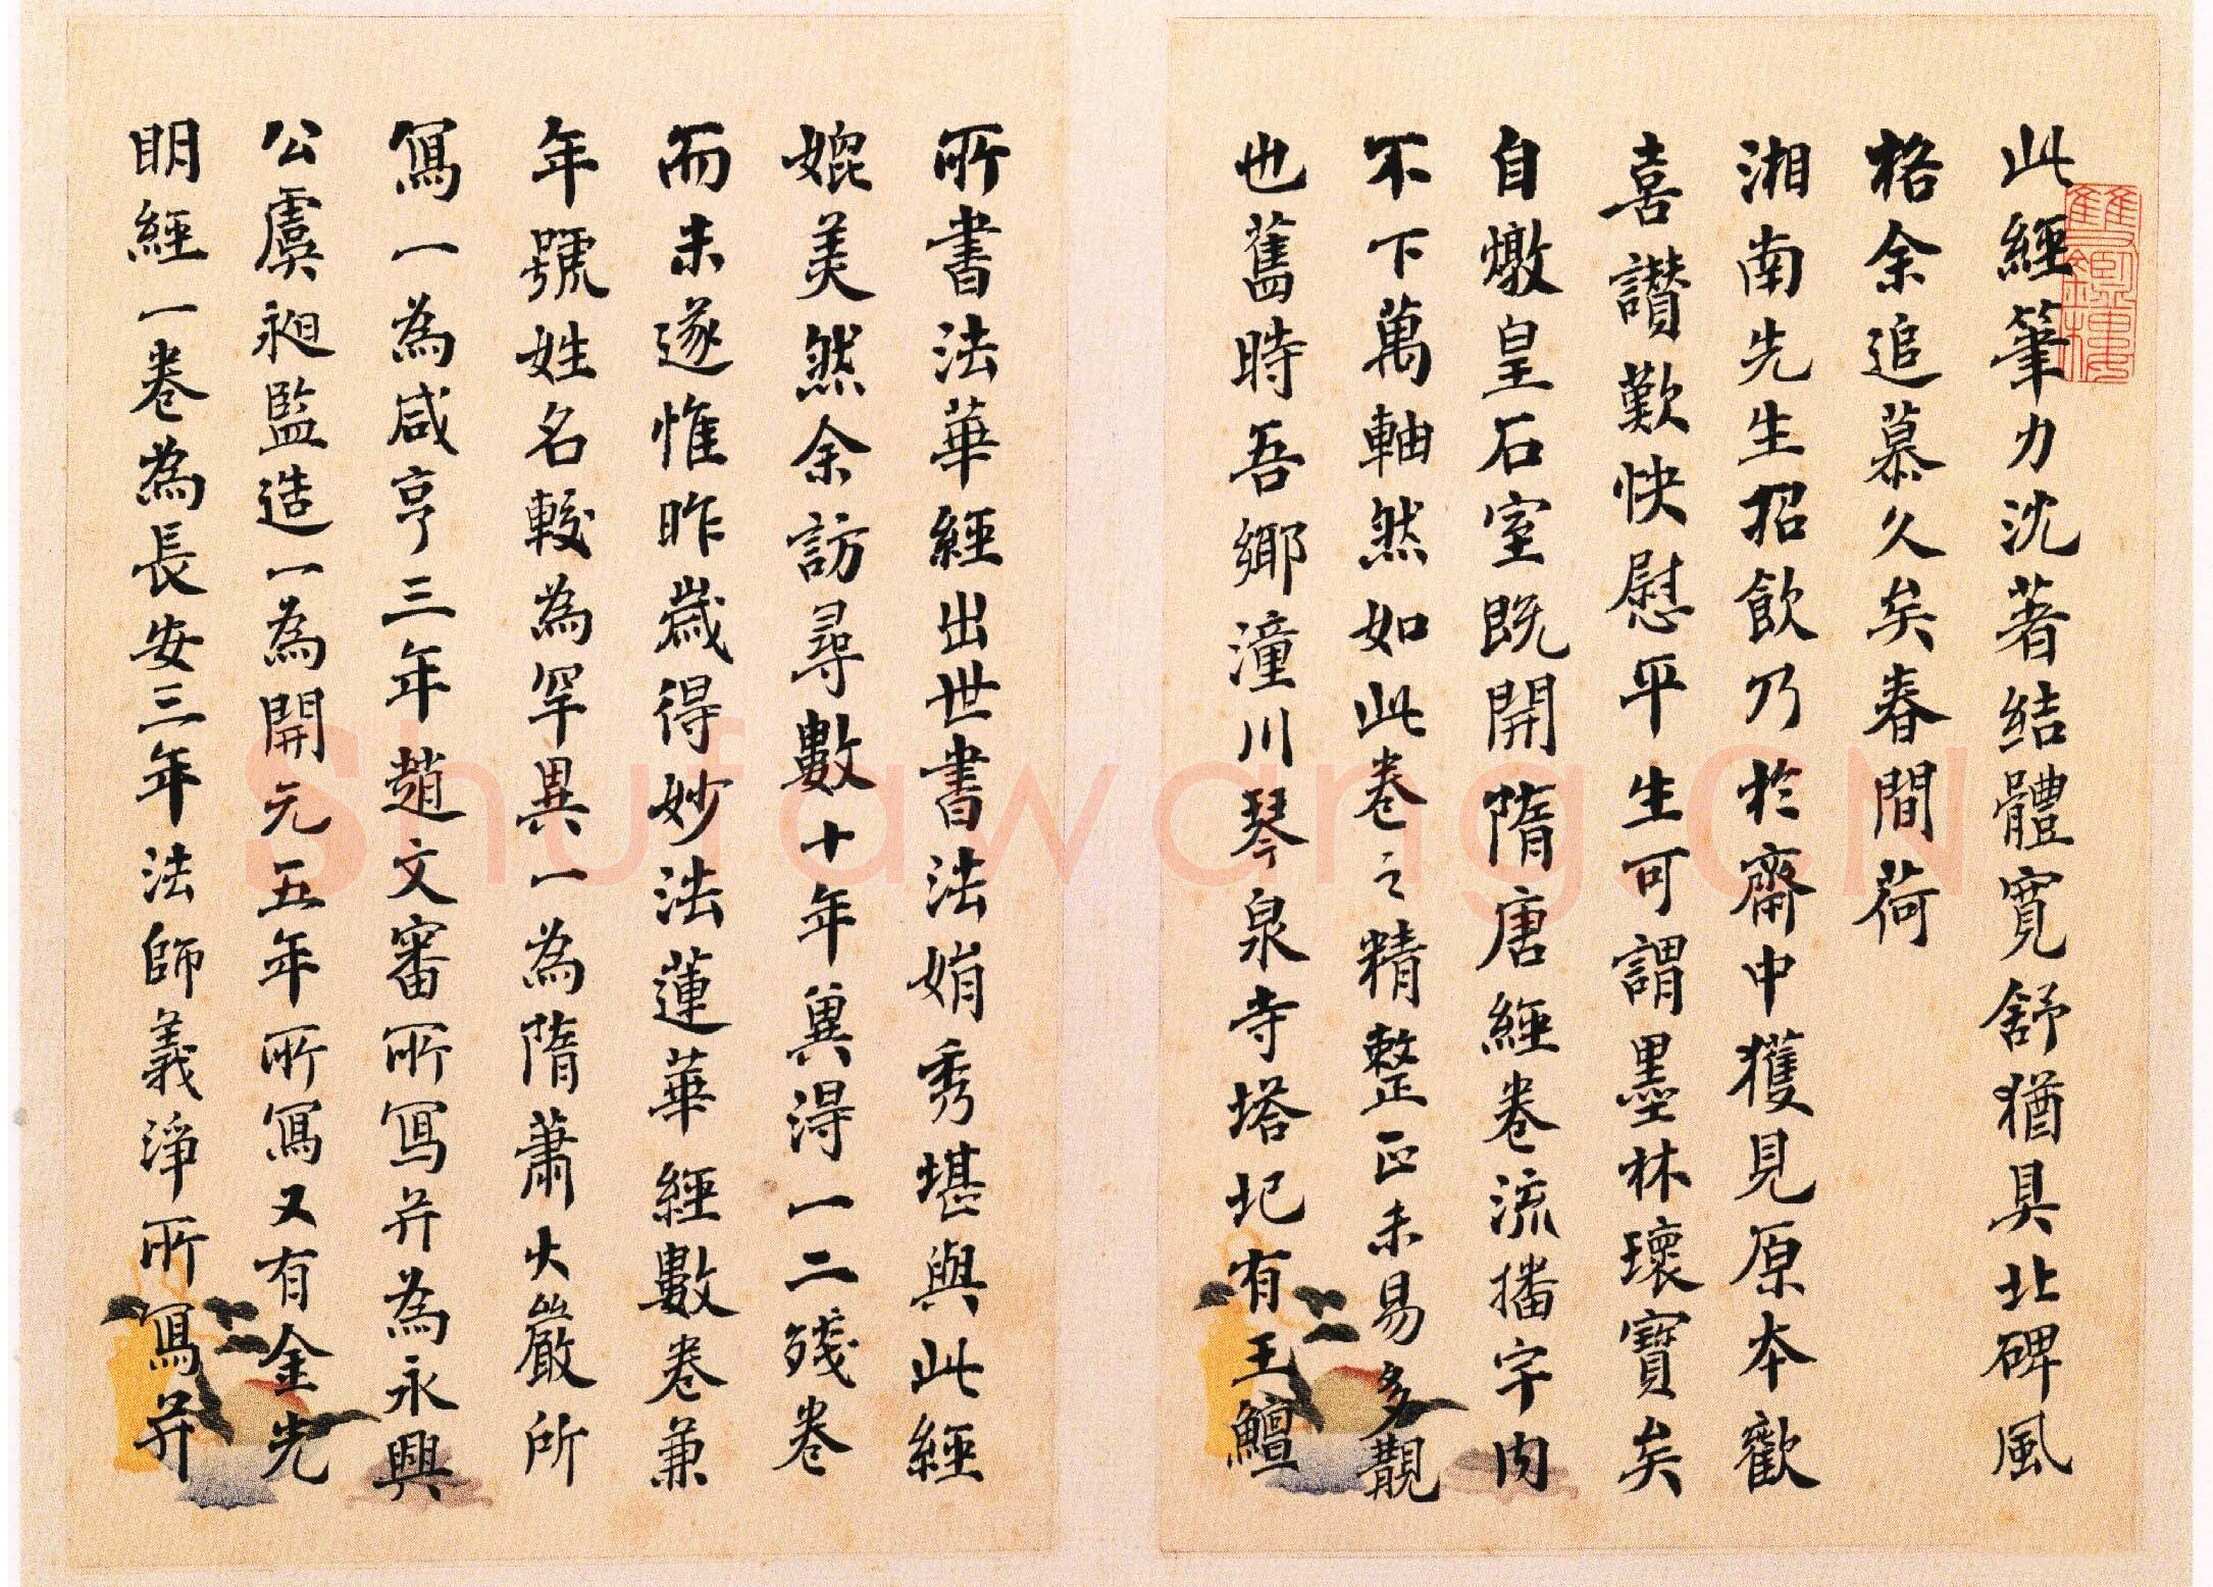 此經筆力沈著结體寬舒猶具北碑風
格余追慕久矣春間荷
湘南先生招飲乃於齋中獲見原本歡
喜讚歎快慰平生可謂墨林瓌寶矣
自燉皇石室既開隋唐經卷流播宇内
不下萬軸然如此卷之精整正未易多覯
也舊時吾鄉潼川琴泉寺塔圮有王鱣
所書法華經出世書法娟秀堪與此經
媲美然余訪尋數十年兾得一二殘卷
而未遂惟昨歲得妙法蓮華經數卷兼
年號姓名較為罕異一為隋蕭大嚴所
寫一為咸亨三年趙文審所寫并為永興
公虞昶監造一為開元五年所寫又有金光
明經一卷為長安三年法師義淨所寫并
Shufawang.CN